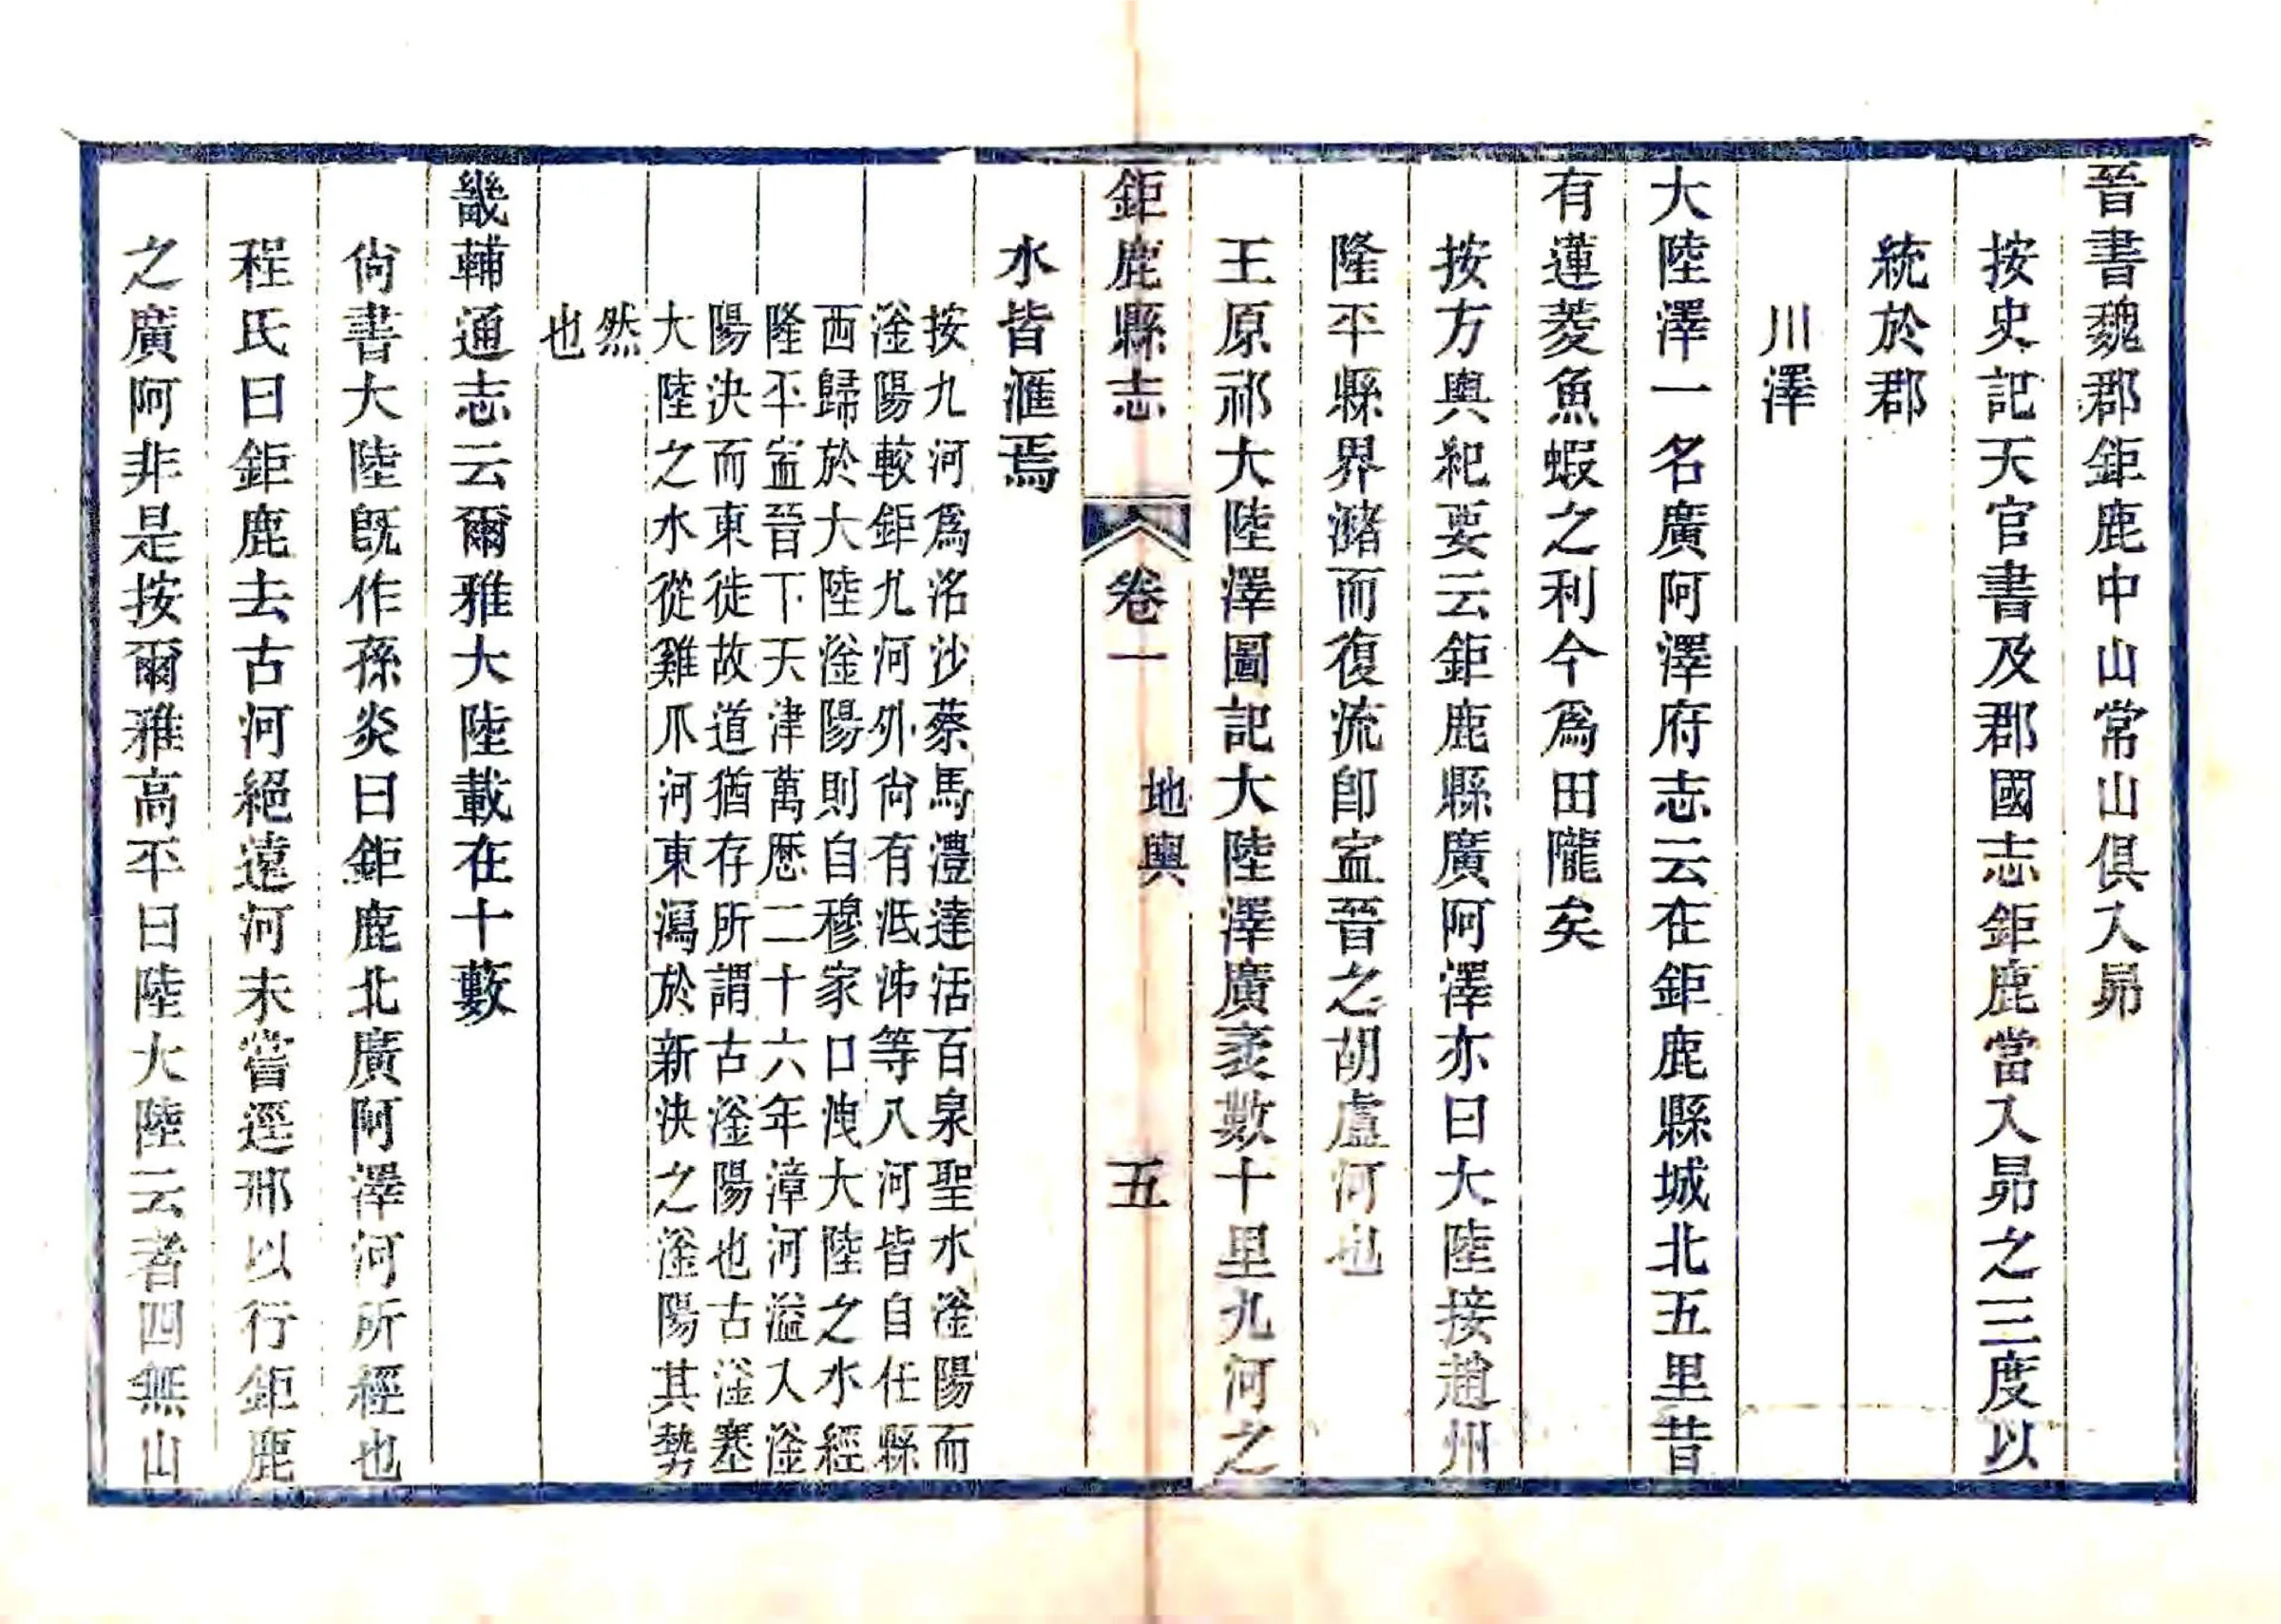 晉書魏郡鉅鹿中山常山俱入昴
按史記天官書及郡國志鉅鹿當入昴之三度以
統於郡
川澤
大陸澤一名廣阿澤府志云在鉅鹿縣城北五里昔
有蓮菱魚蝦之利今爲田隴矣
按方輿紀要云鉅鹿縣廣阿澤亦曰大陸接趙州
隆平縣界瀦而復流卽寍晉之胡盧河也
王原祁大陸澤圖記大陸澤廣袤數十里九河之
鉅鹿縣志 卷一 地輿 五
水皆滙焉
按九河爲洺沙蔡馬澧達活百泉聖水滏陽而
滏陽較鉅九河外尙有泜沛等八河皆自任縣
西歸於大陸滏陽則自穆家口洩大陸之水經
隆平寍晉下天津萬歷二十六年漳河溢入滏
陽決而東徙故道猶存所謂古滏陽也古滏塞
大陸之水從雞爪河東瀉於新決之滏陽其勢
然
也
畿輔通志云爾雅大陸載在十藪
尙書大陸旣作孫炎曰鉅鹿北廣阿澤河所經也
程氏曰鉅鹿去古河絕遠河未嘗逕邢以行鉅鹿
之廣阿非是按爾雅高平曰陸大陸云者四無山